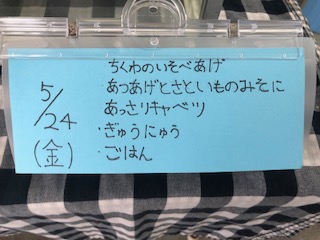 5/24
(金)
ちくわのいそべあげ
・あつあげとさといものみそに
あっさりキャベツ
・ぎゅうにゅう
・ごはん